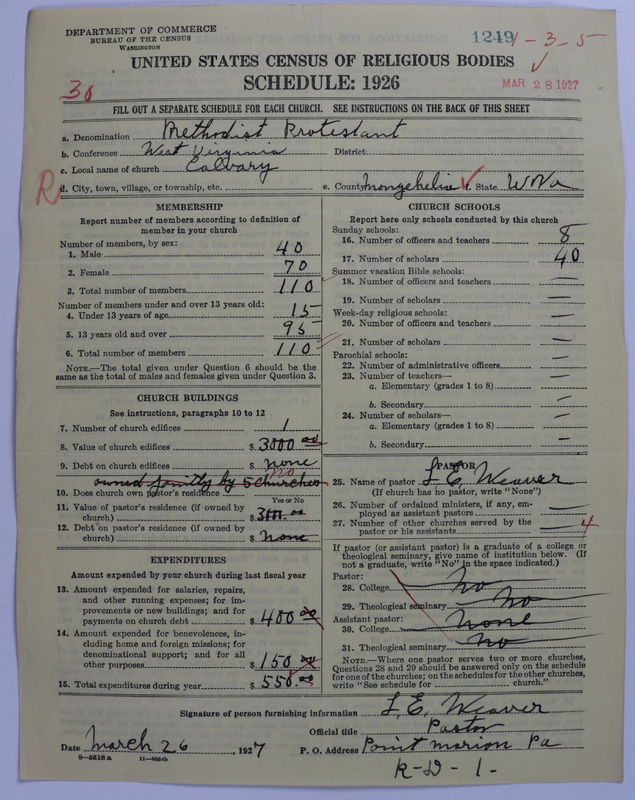 DEPARTMENT OF COMMERCE
BUREAU OF THE CENSUS
WASHINGTON
1249 1-3-5
UNITED STATES CENSUS OF RELIGIOUS BODIES
MAR 28 1927
SCHEDULE: 1926
30
FILL OUT A SEPARATE SCHEDULE FOR EACH CHURCH. SEE INSTRUCTIONS ON THE BACK OF THIS SHEET
a. Denomination Methodist Protestant
b. Conference West Virginia District
c. Local name of church Calvary
R
d. City, town, village, or township, etc. e. County Mongehelia f. State W Va
MEMBERSHIP
Report number of members according to definition of
member in your church
Number of members, by sex:
1. Male 40
2. Female 70
3. Total number of members 110
Number of members under and over 13 years old:
4. Under 13 years of age 15
5. 13 years old and over 95
6. Total number of members 110
NOTE.—The total given under Question 6 should be the
same as the total of males and females given under Question 3.
CHURCH BUILDINGS
See instructions, paragraphs 10 to 12
7. Number of church edifices 1
8. Value of church edifices $ 3000 00
9. Debt on church edifices $ none
owned jointly by 5 churches no
10. Does church own pastor's residence
Yes or No
11. Value of pastor's residence (if owned by
church) $ 3000.00
12. Debt on pastor's residence (if owned by
church) $ none
EXPENDITURES
Amount expended by your church during last fiscal year
13. Amount expended for salaries, repairs,
and other running expenses; for im-
provements or new buildings; and for
payments on church debt $ 400 00
14. Amount expended for benevolences, in-
cluding home and foreign missions; for
denominational support; and for all
other purposes $ 150 00
15. Total expenditures during year $ 550.00
CHURCH SCHOOLS
Report here only schools conducted by this church
Sunday schools:
16. Number of officers and teachers 8
17. Number of scholars 40
Summer vacation Bible schools:
18. Number of officers and teachers —
19. Number of scholars —
Week-day religious schools:
20. Number of officers and teachers —
21. Number of scholars —
Parochial schools:
22. Number of administrative officers —
23. Number of teachers—
a. Elementary (grades 1 to 8) —
b. Secondary —
24. Number of scholars—
a. Elementary (grades 1 to 8) —
b. Secondary —
PASTOR
25. Name of pastor L. E. Weaver
(If church has no pastor, write "None")
26. Number of ordained ministers, if any, em-
ployed as assistant pastors —
27. Number of other churches served by the
pastor or his assistants — 4
If pastor (or assistant pastor) is a graduate of a college or
theological seminary, give name of institution below. (If
not a graduate, write "No" in the space indicated.)
Pastor:
28. College no
29. Theological seminary no
Assistant pastor:
30. College none
31. Theological seminary no
NOTE.—Where one pastor serves two or more churches,
Questions 28 and 29 should be answered only on the schedule
for one of the churches; on the schedules for the other churches,
write "See schedule for church."
Signature of person furnishing information L. E. Weaver
Official title Pastor
Date March 26, 1927 P. O. Address Point Marion Pa
R-D-1-